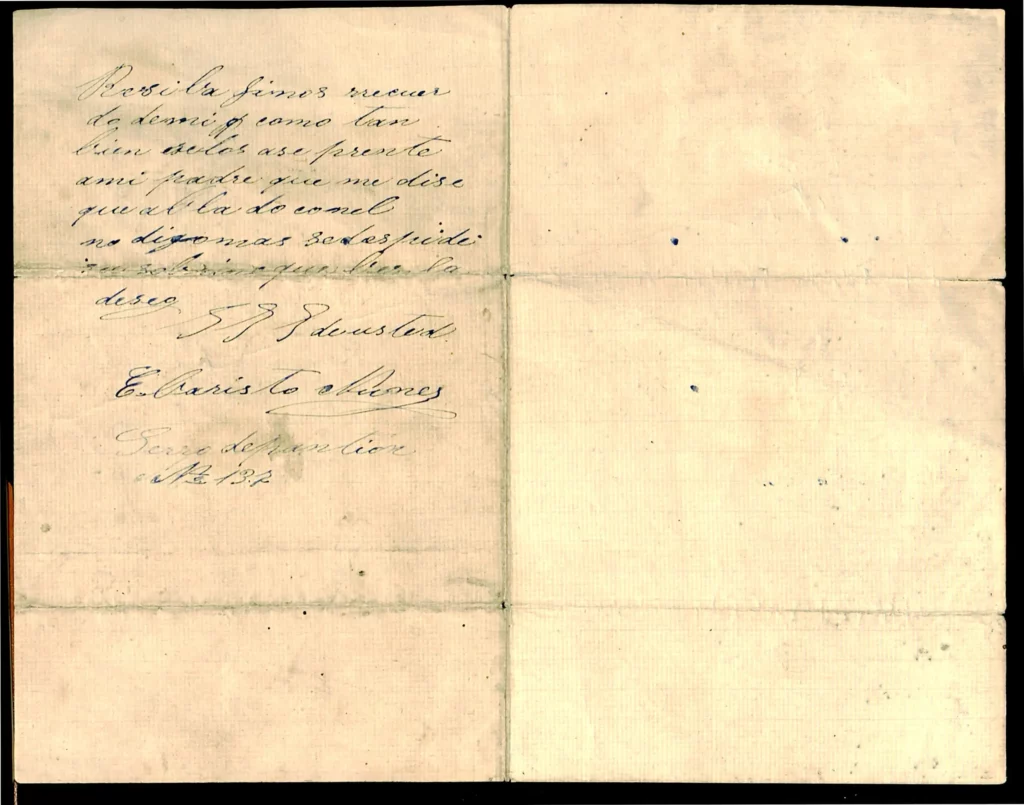 Resiba finos rrecuer
do demi y como tan
bien selos ase prente
ami padre que me dise
que abla do conel
no digomas sedespide
su sobrino que bien la
desea
S S S deusted.
E.baristo Nunes
Serro de
Nº 137